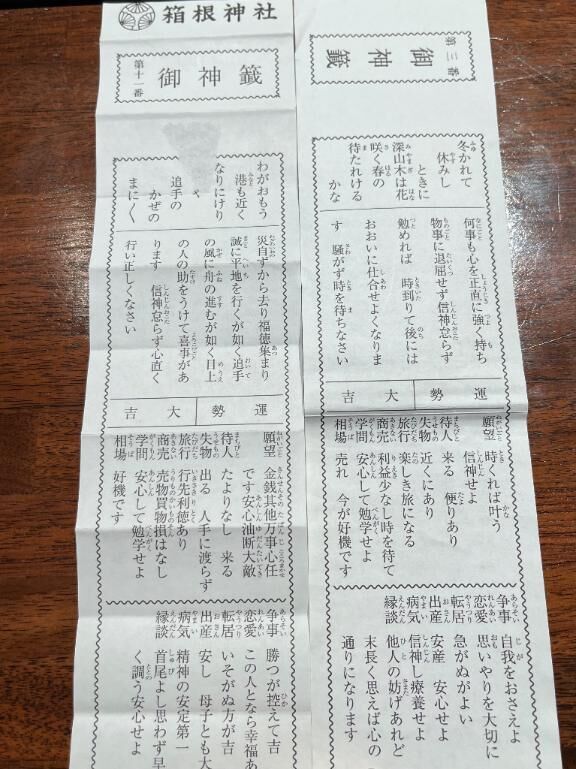 箱根神社
第十一番
御神籤
わがおもう
港も近く
なりにけり
や
追手の
かぜの
まに〱
災自すから去り福徳集まり
誠に平地を行くが如く追手
の風に舟の進むが如く目上
の人の助をうけて喜事があ
ります 信神怠らず心直く
行い正しくなさい
運勢
大吉
願望 金銭其他万事心任
です安心油断大敵
待人 たよりなし 来る
失物 出る 人手に渡らず
旅行 行先利徳あり
商売 売物買物損はなし
学問 安心して勉学せよ
相場 好機です
争事 勝つが控えて吉
恋愛 この人となら幸福あ
転居 いそがぬ方が吉
出産 安し 母子とも大
病気 精神の安定第一
縁談 首尾よし思わず早
く調う安心せよ
第三番
御神籤
冬かれて
休みし
ときに
深山木は花
咲く春の
待たれける
かな
何事も心を正直に強く持ち
物事に退屈せず信神怠らず
勉めれば 時到りて後には
おおいに仕合せよくなりま
す 騒がず時を待ちなさい
運勢
大吉
願望 時くれば叶う
信神せよ
待人 来る 便りあり
失物 近くにあり
旅行 楽しき旅になる
商売 利益少なし時を待て
学問 安心して勉学せよ
相場 売れ 今が好機です
争事 自我をおさえよ
恋愛 思いやりを大切に
転居 急がぬがよい
出産 安産 安心せよ
病気 信神し療養せよ
縁談 他人の妨げあれど
末長く思えば心の
通りになります